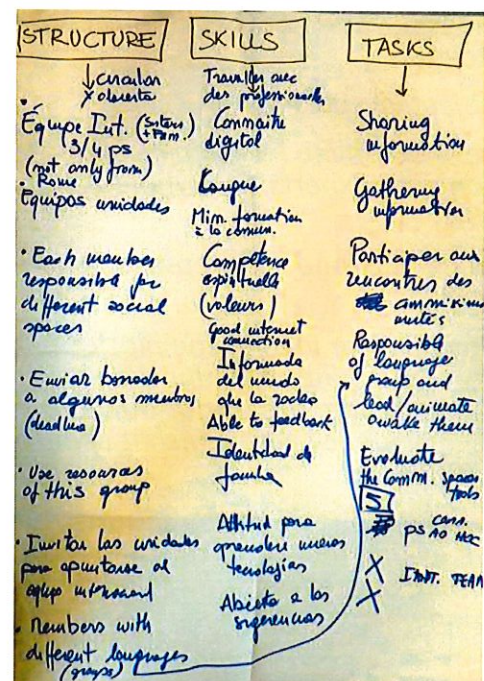 STRUCTURE
↓ circular
x abierta
• Équipe Int. (Sisters + Fam.)
3/4 ps
(not only from)
Rome
• Equipos unidades
• Each member
responsible for
different social
spaces
• Enviar borrador
a algunos miembros
(deadline)
• Use resources
of this group
• Invitar las unidades
para apuntarse al
equipo
• Members with
different languages
(groups)
SKILLS
Travailler avec
des professionnels
Connaître
digital
Langue
Min. formation
à la commun.
Compétence
spirituelle
(valeurs)
Good internet
connection
Informada
del mundo
que la rodea
Able to feedback
Identidad de
familia
Attitud para
aprender nuevas
tecnologías
Abierta a las
sugerencias
TASKS
↓
Sharing
information
Gathering
information
Participer aux
rencontres des
commissions
unités
Responsible
of language
group and
lead/animate
awake them
Evaluate
the Comm. spaces
tools
5
ps AD HOC
X INT. TEAM
X